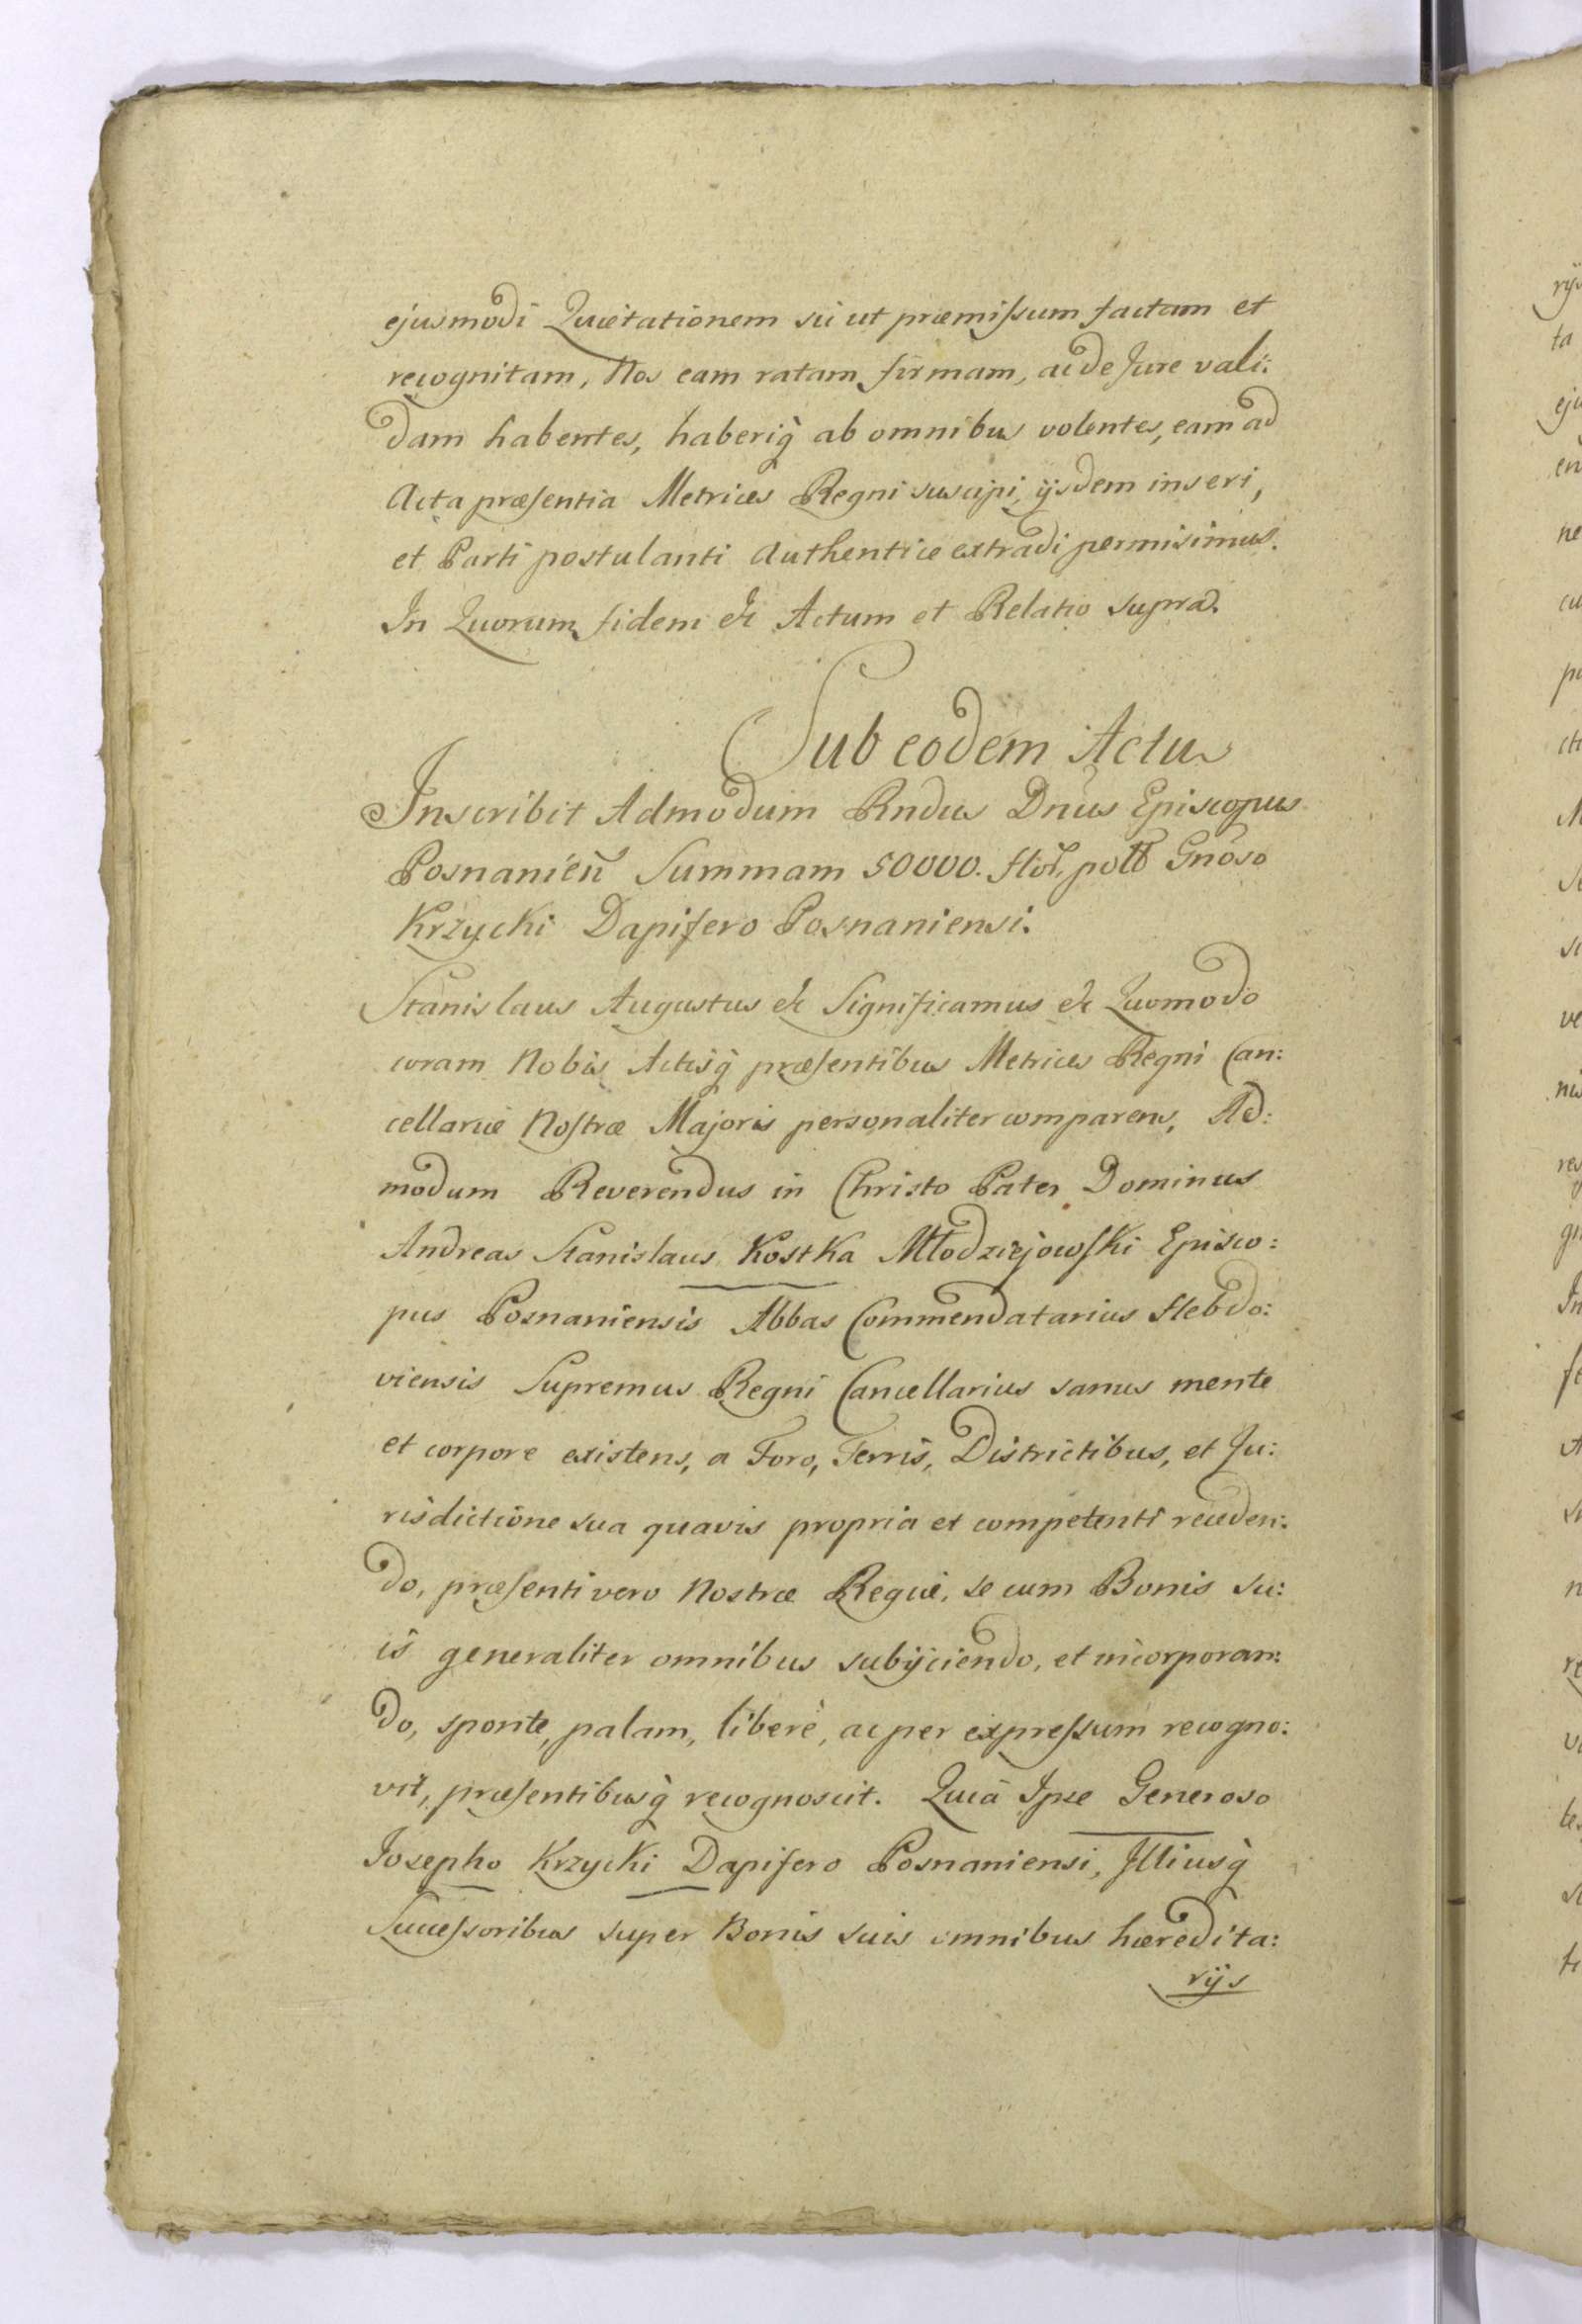 ejusmodi Quietationem sic ut præmissum factam et
recognitam, Nos eam ratam firmam, ac de Jure vali:
dam habentes, haberiq̀ ab omnibus volentes, eam ad
Acta præsentia Metrices Regni suscipi, ijsdem inseri,
et Parti postulanti Authentice extradi permisimus.
In Quorum fidem &c Actum et Relatio supra.
Sub eodem Actu
Inscribit Admodum Rndus Dnus Episcopus
Posnanień Summam 50000. flor. poll Gnoso
Krzycki Dapifero Posnaniensi.
Stanislaus Augustus &c Significamus &c Quomodo
coram Nobis Actisq̀ præsentibus Metrices Regni Can:
cellariæ Nostræ Majoris personaliter comparens, Ad:
modum Reverendus in Christo Pater Dominus
Andreas Stanislaus Kostka Młodziejowski Episco:
pus Posnaniensis Abbas Commendatarius Hebdo:
viensis Supremus Regni Cancellarius sanus mente
et corpore existens, a Foro, Terris, Districtibus, et Ju:
risdictione sua quavis propria et competenti receden:
do, præsenti vero Nostræ Regiæ, se cum Bonis su:
is generaliter omnibus subijciendo, et incorporan:
do, sponte, palam, liberè, ac per expressum recogno:
vit, præsentibusq̀ recognoscit. Quia Ipse Generoso
Josepho Krzycki Dapifero Posnaniensi, Illiusq̀
Successoribus super Bonis suis omnibus hæredita:
rijs